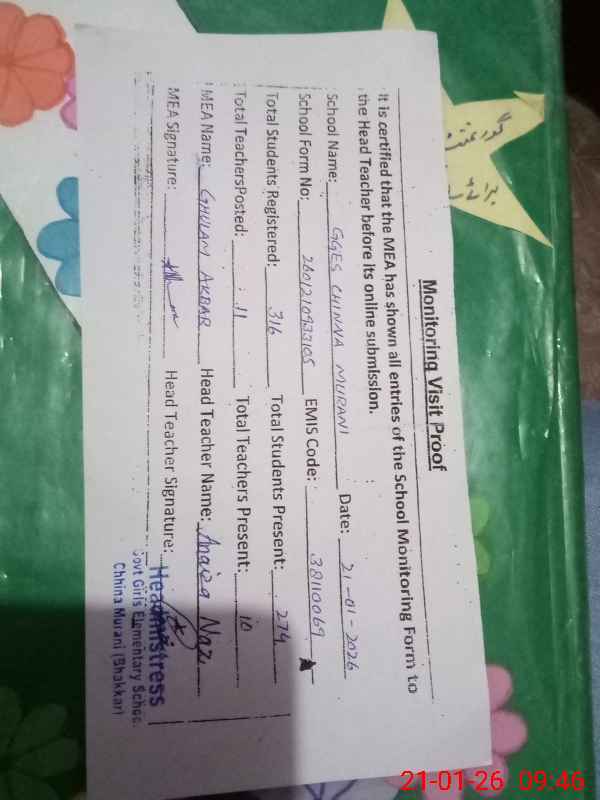 گورنمنٹ
برائے
Monitoring Visit Proof
It is certified that the MEA has shown all entries of the School Monitoring Form to
the Head Teacher before its online submission.
School Name: GGES CHINNA MURANI Date: 21-01-2026
School Form No: 2601210933105 EMIS Code: 38110069
Total Students Registered: 316 Total Students Present: 274
Total TeachersPosted: 11 Total Teachers Present: 10
MEA Name: GHULAM AKBAR Head Teacher Name:
MEA Signature: Head Teacher Signature:
Headmistress
Govt Girls Elementary School
Chhina Murani (Bhakkar)
21-01-26 09:46